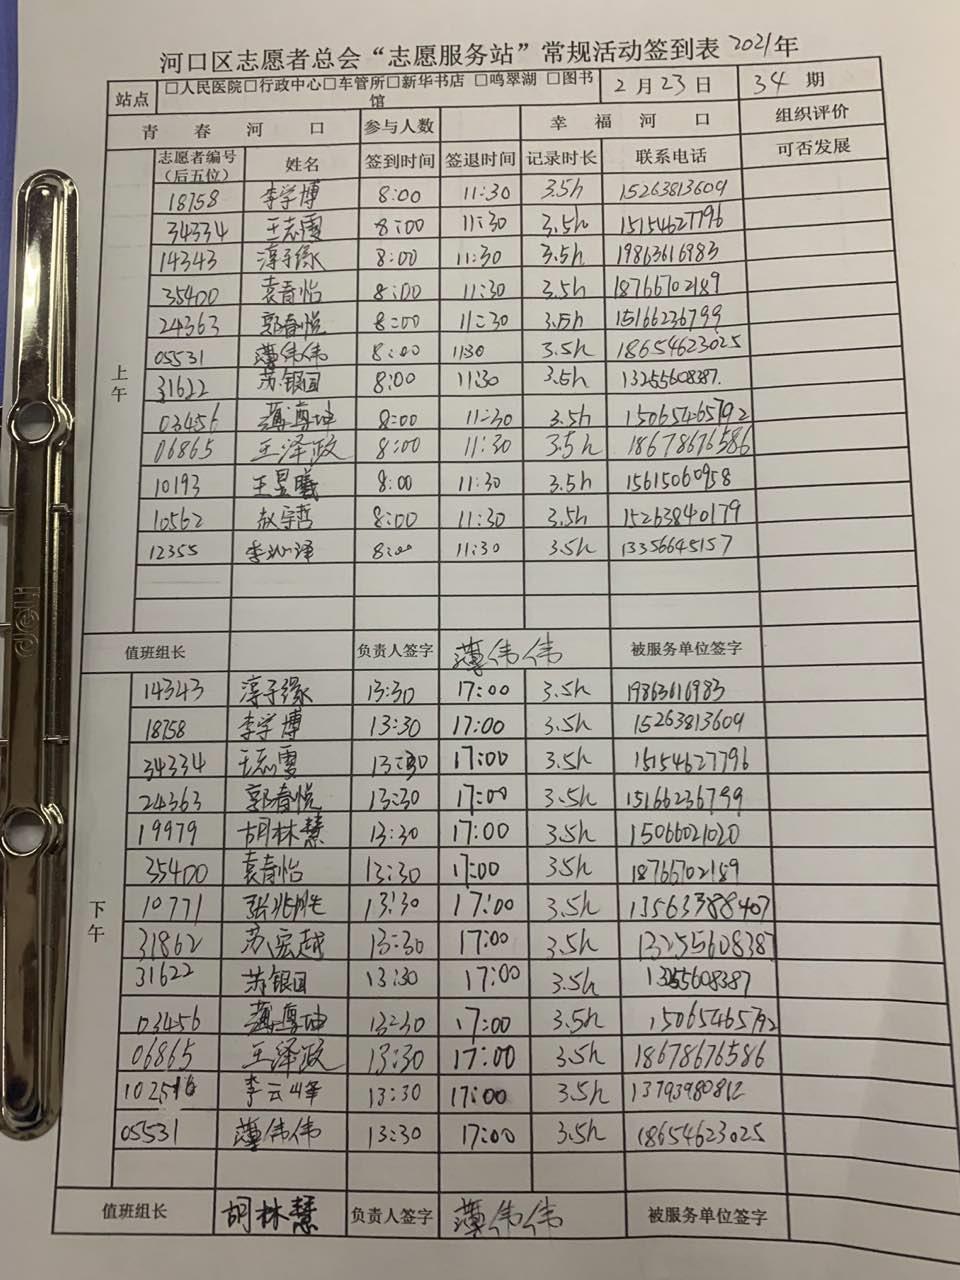 河口区志愿者总会“志愿服务站”常规活动签到表 2021年
站点 □人民医院□行政中心□车管所□新华书店 □鸣翠湖 □图书馆 2月23日 34期
青春河口 参与人数 幸福河口 组织评价
志愿者编号（后五位） 姓名 签到时间 签退时间 记录时长 联系电话 可否发展
上午
18758 李学博 8:00 11:30 3.5h 15263813609
34334 王志雪 8:00 11:30 3.5h 15154627796
14343 淳子缘 8:00 11:30 3.5h 19863616983
35400 袁春怡 8:00 11:30 3.5h 18766702189
24363 郭春悦 8:00 11:30 3.5h 15166236799
05531 薄伟伟 8:00 1130 3.5h 18654623025
31622 苏银国 8:00 11:30 3.5h 13255608387.
03456 薄尊坤 8:00 11:30 3.5h 15065465792
06865 王泽政 8:00 11:30 3.5h 18678676586
10193 王昱曦 8:00 11:30 3.5h 15615060958
10562 赵宇哲 8:00 11:30 3.5h 15263840179
12355 李沁泽 8:00 11:30 3.5h 13356645157
值班组长 负责人签字 薄伟伟 被服务单位签字
下午
14343 淳子缘 13:30 17:00 3.5h 19863616983
18758 李学博 13:30 17:00 3.5h 15263813609
34334 王志雪 13:30 17:00 3.5h 15154627796
24363 郭春悦 13:30 17:00 3.5h 15166236799
19979 胡林慧 13:30 17:00 3.5h 15066021020
35400 袁春怡 13:30 17:00 3.5h 18766702189
10771 张兆胜 13:30 17:00 3.5h 13563388407
31862 苏宏越 13:30 17:00 3.5h 13255608387
31622 苏银国 13:30 17:00 3.5h 13255608387
03456 薄尊坤 13:30 17:00 3.5h 15065465792
06865 王泽政 13:30 17:00 3.5h 18678676586
李云峰 13:30 17:00 3.5h 13793980812
05531 薄伟伟 13:30 17:00 3.5h 18654623025
值班组长 胡林慧 负责人签字 薄伟伟 被服务单位签字
deli